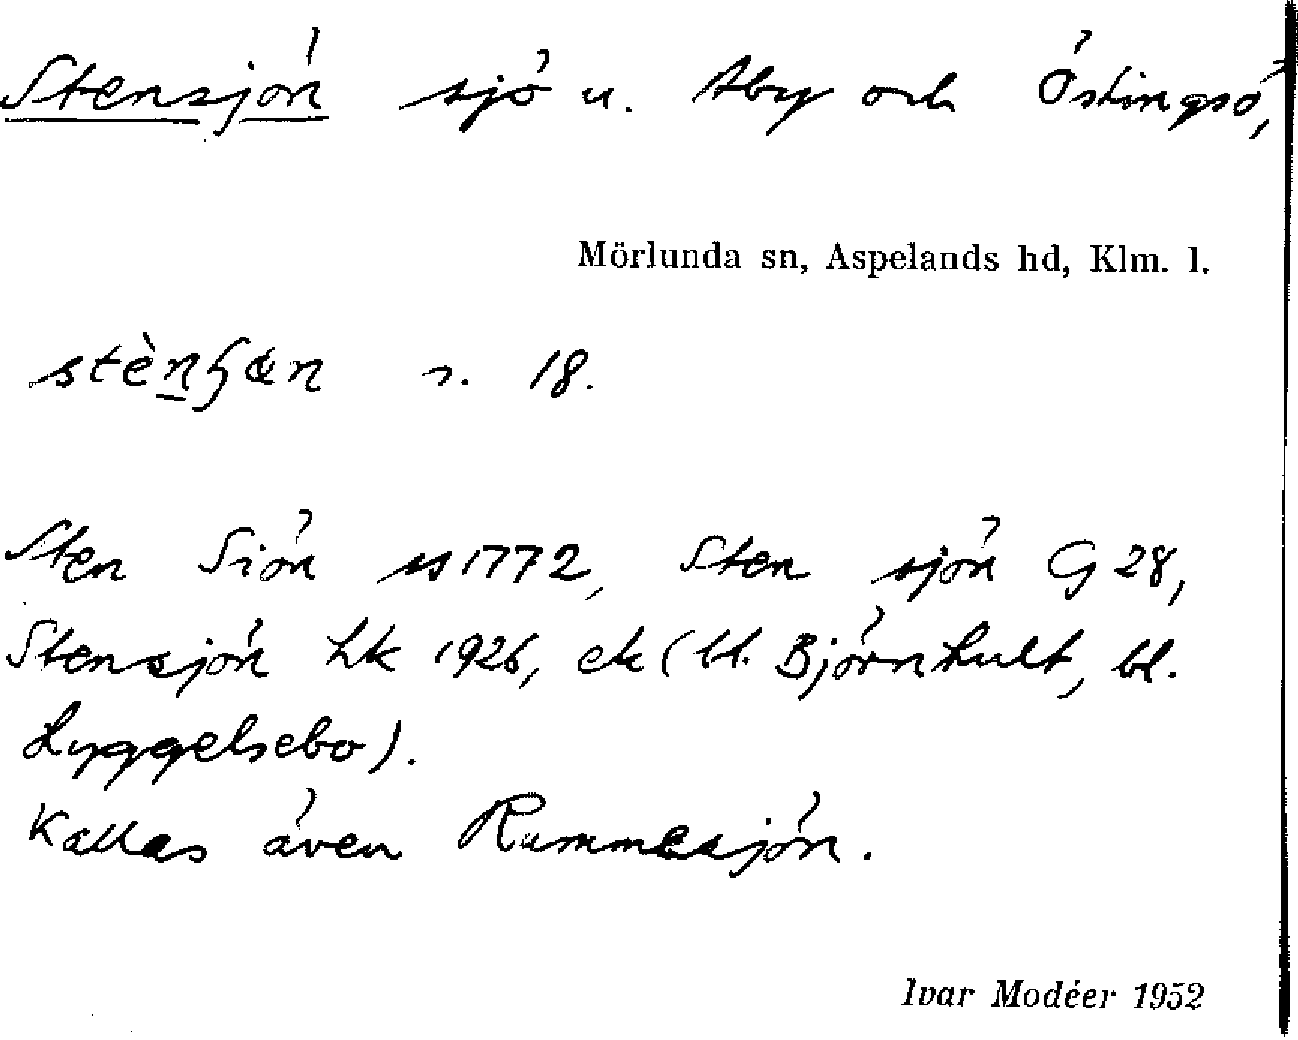 Stensjön sjö u. Åby och Östingsö,
Mörlunda sn, Aspelands hd, Klm. l.
s. 18.
Sten Siön ss 1772, Sten sjön G 28,
Stensjön Lk 1926, ek (bl. Björnhult, bl.
Lyggelsebo).
Kallas även Rummesjön.
Ivar Modéer 1952